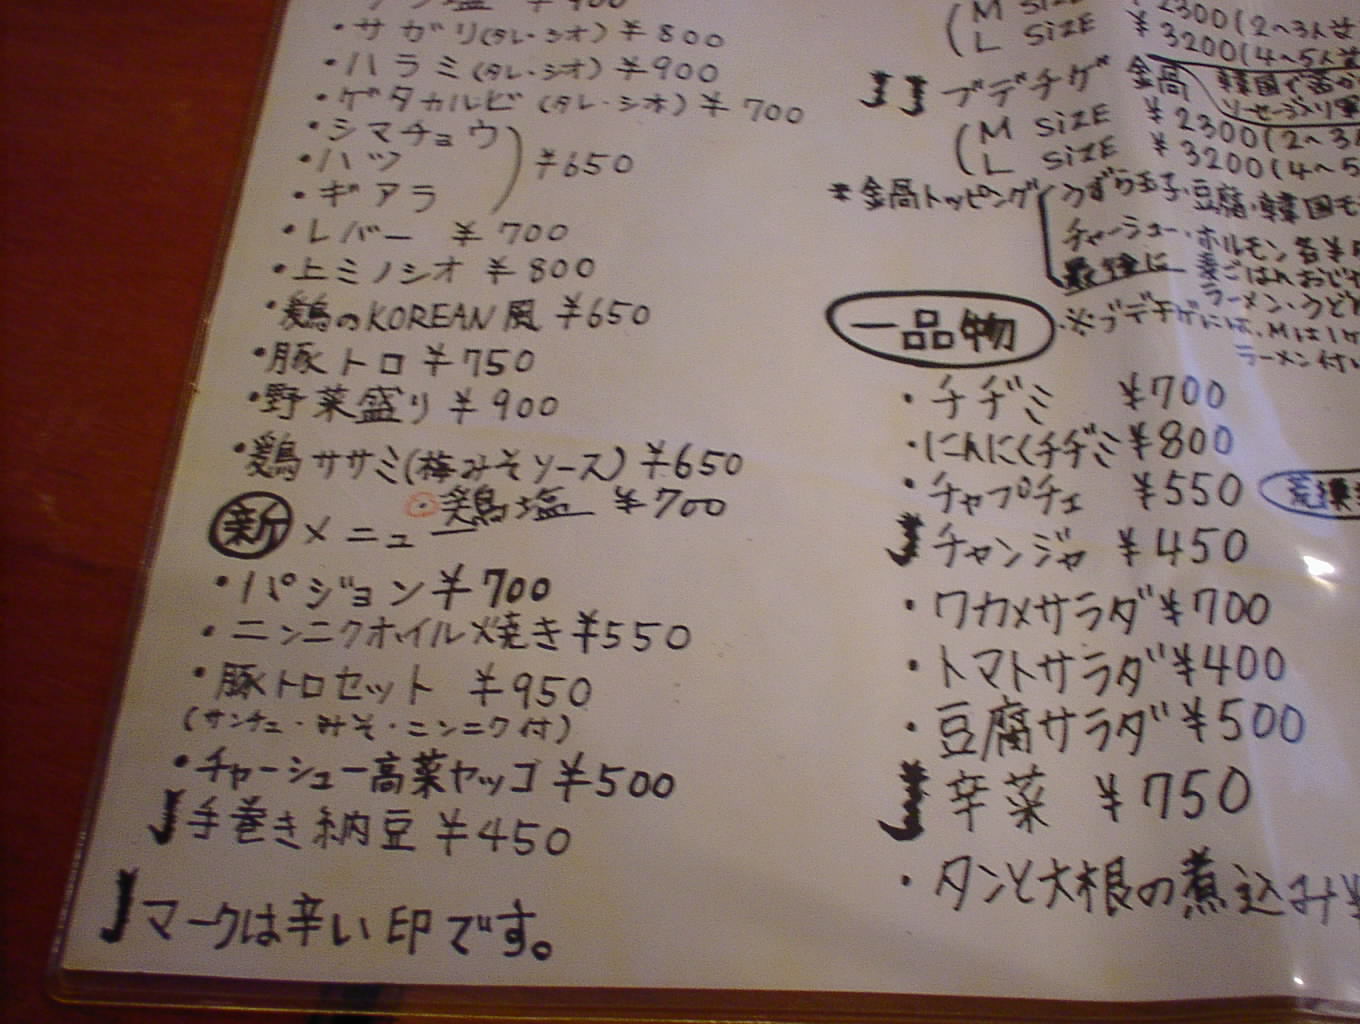 タン塩 ¥900
・サガリ(タレ・シオ) ¥800
・ハラミ(タレ・シオ) ¥900
・ゲタカルビ(タレ・シオ) ¥700
・シマチョウ
・ハツ ¥650
・ギアラ
・レバー ¥700
・上ミノシオ ¥800
・鶏のKOREAN風 ¥650
・豚トロ ¥750
・野菜盛り ¥900
・鶏ササミ(梅みそソース) ¥650
・鶏塩 ¥700
新メニュー
・パジョン ¥700
・ニンニクホイル焼き ¥550
・豚トロセット ¥950
(サンチュ・みそ・ニンニク付)
・チャーシュー高菜ヤッコ ¥500
手巻き納豆 ¥450
マークは辛い印です。
(M SIZE ¥2300(2〜3人
L SIZE ¥3200(4〜5人
プデチゲ
韓国で
ソーセージ入り
(M SIZE ¥2300(2〜3人
L SIZE ¥3200(4〜5
*全鍋トッピング
うずら玉子・豆腐・韓国モ
チャーシュー・ホルモン各半
最後に 麦ごはんおじや
ラーメン・うどん
一品物
※プデチゲには、Mは1ケ
ラーメン付い
・チヂミ ¥700
・にんにくチヂミ ¥800
・チャプチェ ¥550
チャンジャ ¥450
・ワカメサラダ ¥700
・トマトサラダ ¥400
・豆腐サラダ ¥500
辛菜 ¥750
・タンと大根の煮込み ¥